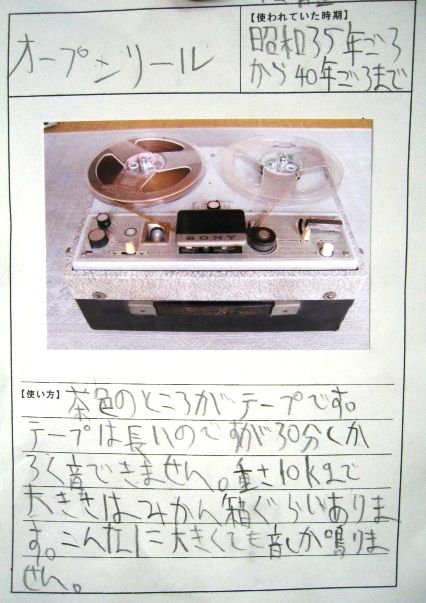 【使われていた時期】
オープンリール
昭和35年ごろ
から40年ごろまで
SONY
【使い方】 茶色のところがテープです。
テープは長いのですが30分しか
ろく音できません。重さ10kgで
大きさはみかん箱ぐらいありま
す。こんなに大きくても音しか鳴りま
せん。